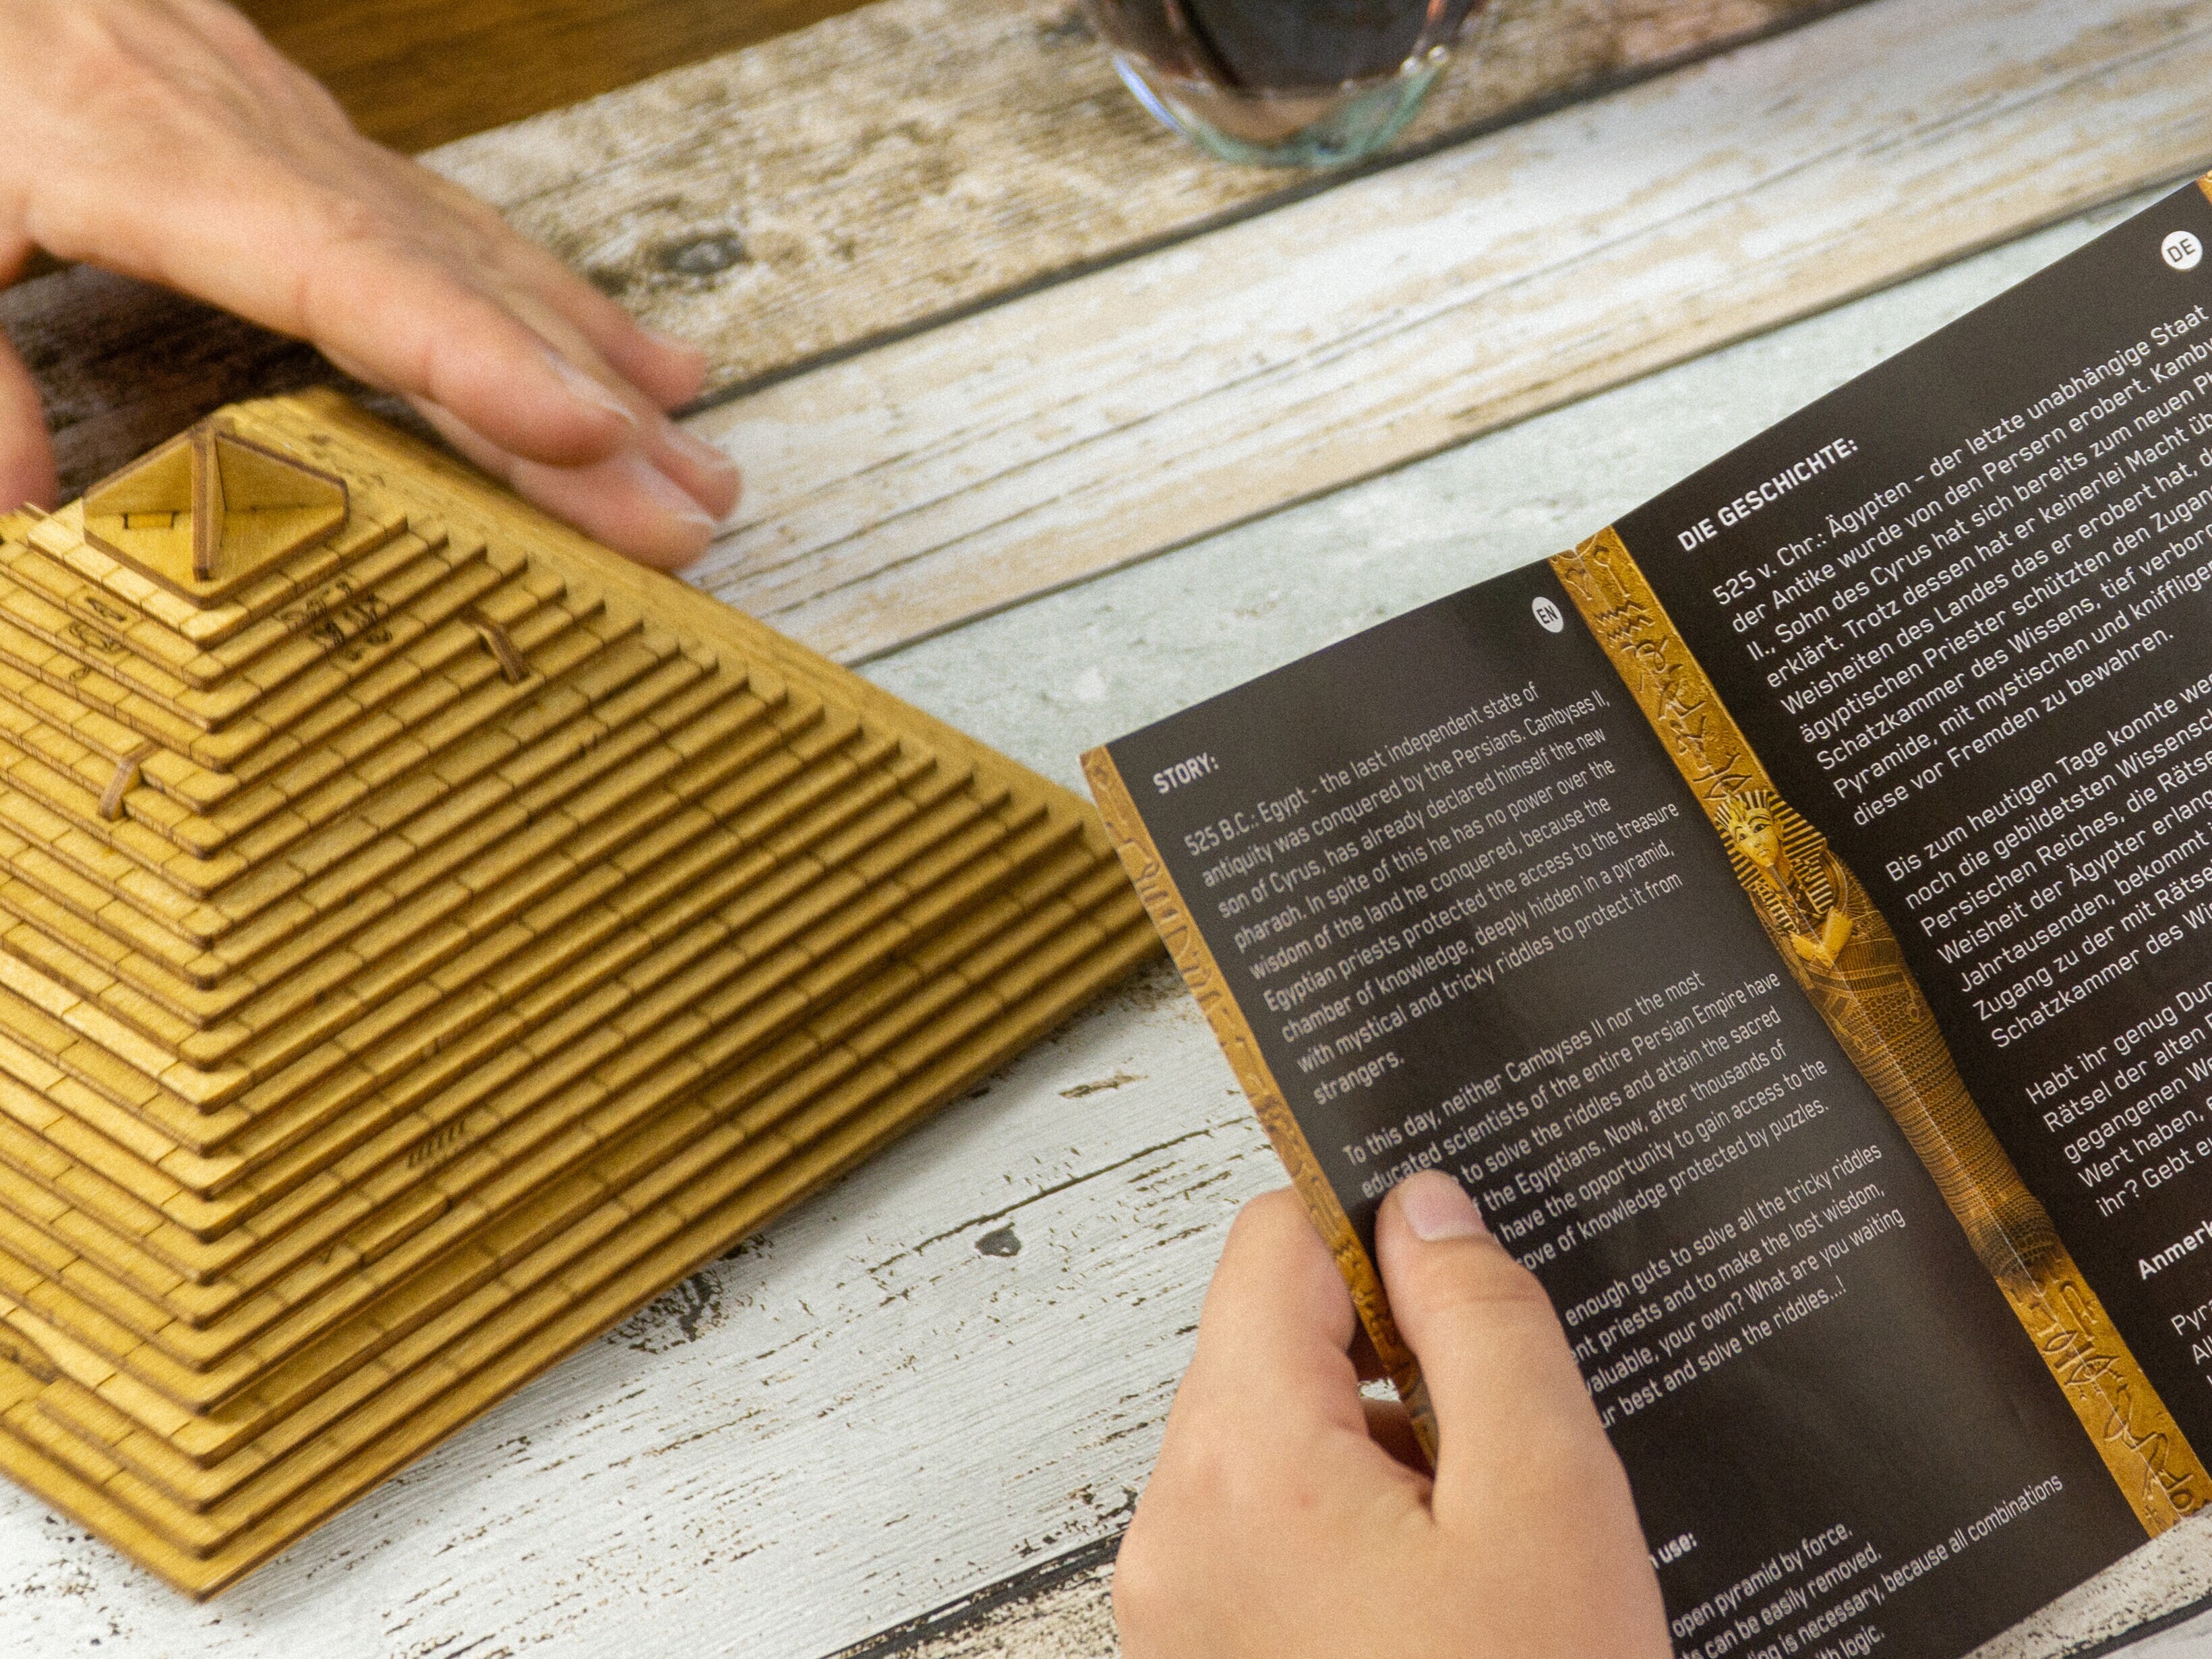 EN
STORY:
525 B.C.: Egypt - the last independent state of
antiquity was conquered by the Persians. Cambyses II,
son of Cyrus, has already declared himself the new
pharaoh. In spite of this he has no power over the
wisdom of the land he conquered, because the
Egyptian priests protected the access to the treasure
chamber of knowledge, deeply hidden in a pyramid,
with mystical and tricky riddles to protect it from
strangers.
To this day, neither Cambyses II nor the most
educated scientists of the entire Persian Empire have
to solve the riddles and attain the sacred
the Egyptians. Now, after thousands of
have the opportunity to gain access to the
of knowledge protected by puzzles.
enough guts to solve all the tricky riddles
priests and to make the lost wisdom,
valuable, your own? What are you waiting
best and solve the riddles...!
use:
open pyramid by force.
can be easily removed.
is necessary, because all combinations
logic.
DE
DIE GESCHICHTE:
525 v. Chr.: Ägypten - der letzte unabhängige Staat
der Antike wurde von den Persern erobert.
II., Sohn des Cyrus hat sich bereits zum neuen
erklärt. Trotz dessen hat er keinerlei Macht
Weisheiten des Landes das er erobert hat,
ägyptischen Priester schützten den
Schatzkammer des Wissens, tief
Pyramide, mit mystischen und
diese vor Fremden zu bewahren.
Bis zum heutigen Tage konnte
noch die gebildetsten
Persischen Reiches, die
Weisheit der Ägypter
Jahrtausenden, bekommt
Zugang zu der mit
Schatzkammer des
Habt ihr genug
Rätsel der alten
gegangenen
Wert haben,
ihr? Gebt